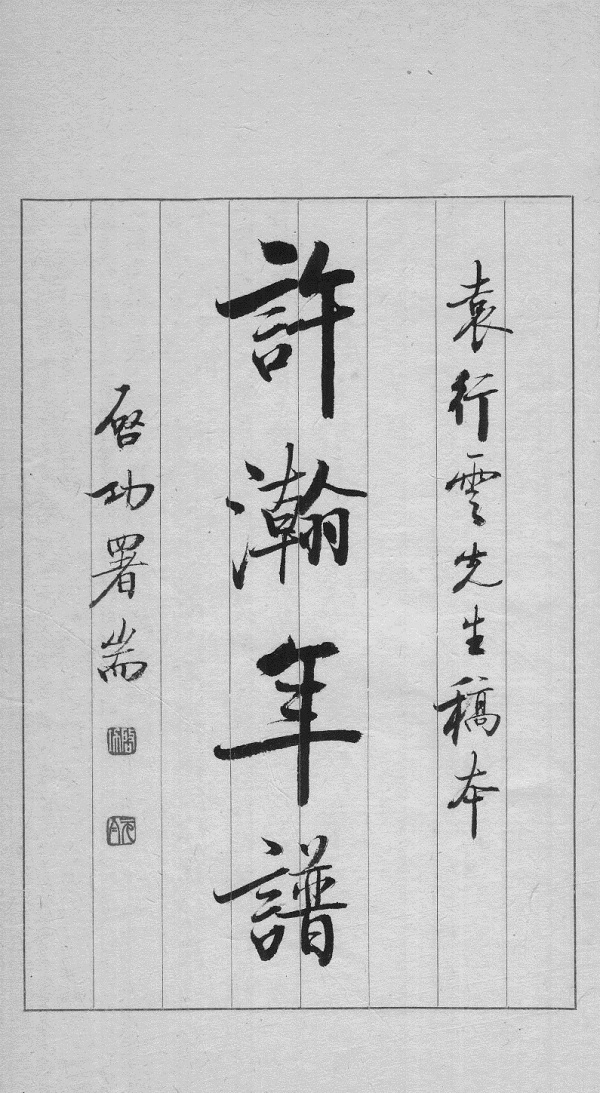 袁行雲先生稿本
許瀚年譜
啓功署耑